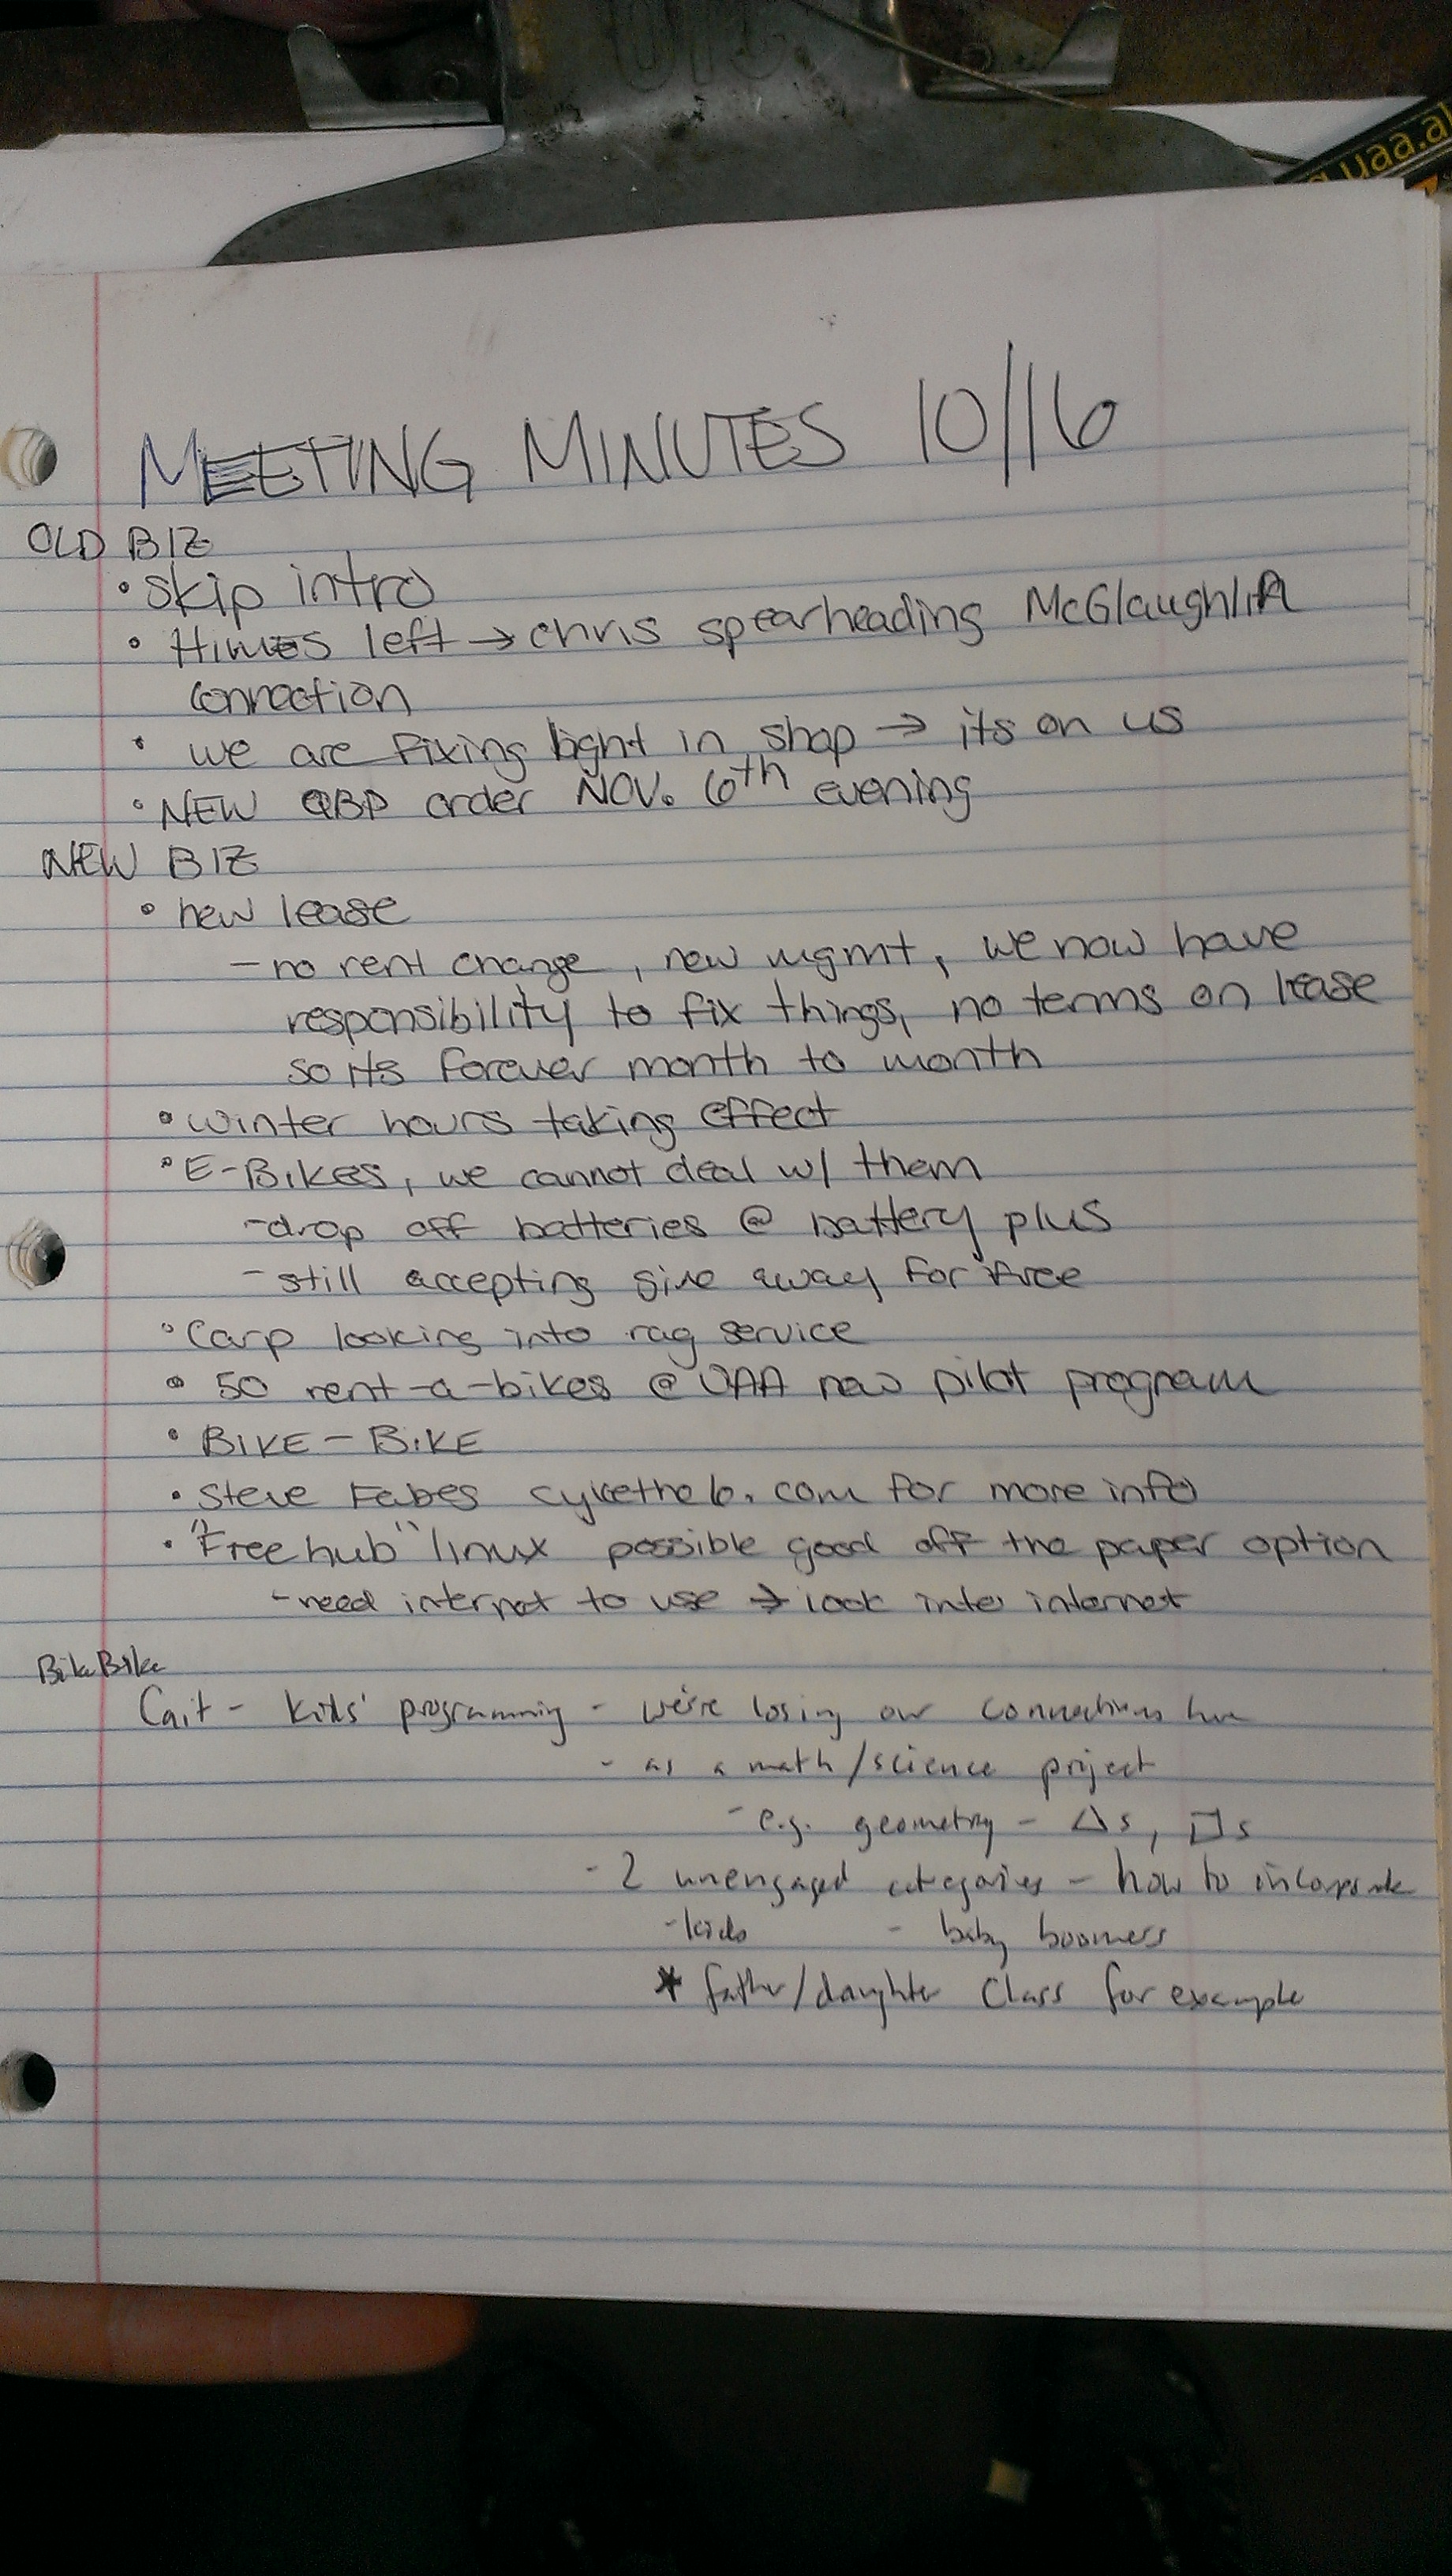 uaa.a
MEETING MINUTES 10/16
OLD BIZ
• Skip intro
• Himes left → chris spearheading McGlaughlin
connection
• we are fixing light in shop → its on us
• NEW QBP order NOV. 6th evening
NEW BIZ
• new lease
- no rent change, new mgmt, we now have
responsibility to fix things, no terms on lease
so its forever month to month
• winter hours taking effect
• E-Bikes, we cannot deal w/ them
- drop off batteries @ battery plus
- still accepting give away for free
• Carp looking into rag service
• 50 rent-a-bikes @ UAA new pilot program
• BIKE - BIKE
• Steve Fabes cyclethe6.com for more info
• "Freehub" linux possible good off the paper option
- need internet to use → look into internet
BikeBike
Cait - kids' programming - we're losing our connections
- as a math/science project
- e.g. geometry - △s, □s
- 2 unengaged categories - how to incorporate
- kids - baby boomers
* father/daughter class for example